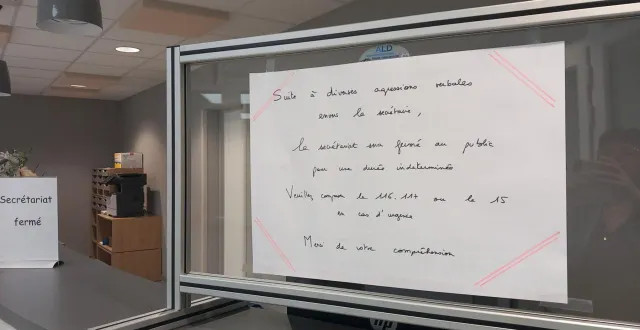 ALD
Suite à diverses agressions verbales
envers la secrétaire,
le secrétariat sera fermé au public
pour une durée indeterminée
Veuillez composer le 116.117 ou le 15
en cas d'urgence
Merci de votre compréhension
Secrétariat
fermé
hp